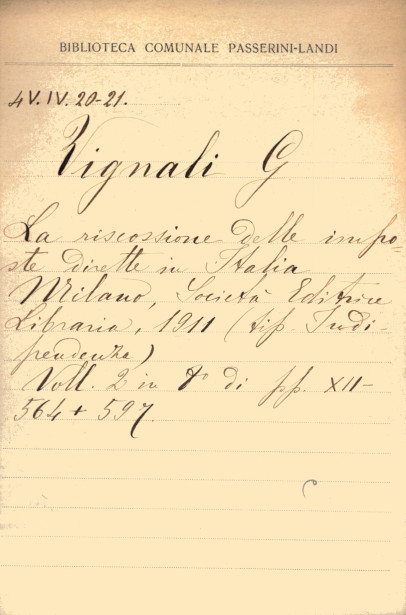 BIBLIOTECA COMUNALE PASSERINI-LANDI
4V.IV.20-21.
Vignali G
La riscossione delle impo-
ste dirette in Italia
Milano, Società Editrice
Libraria, 1911 (tip. Indi-
pendenza)
Voll. 2 in 8° di pp. XII-
564 + 597.